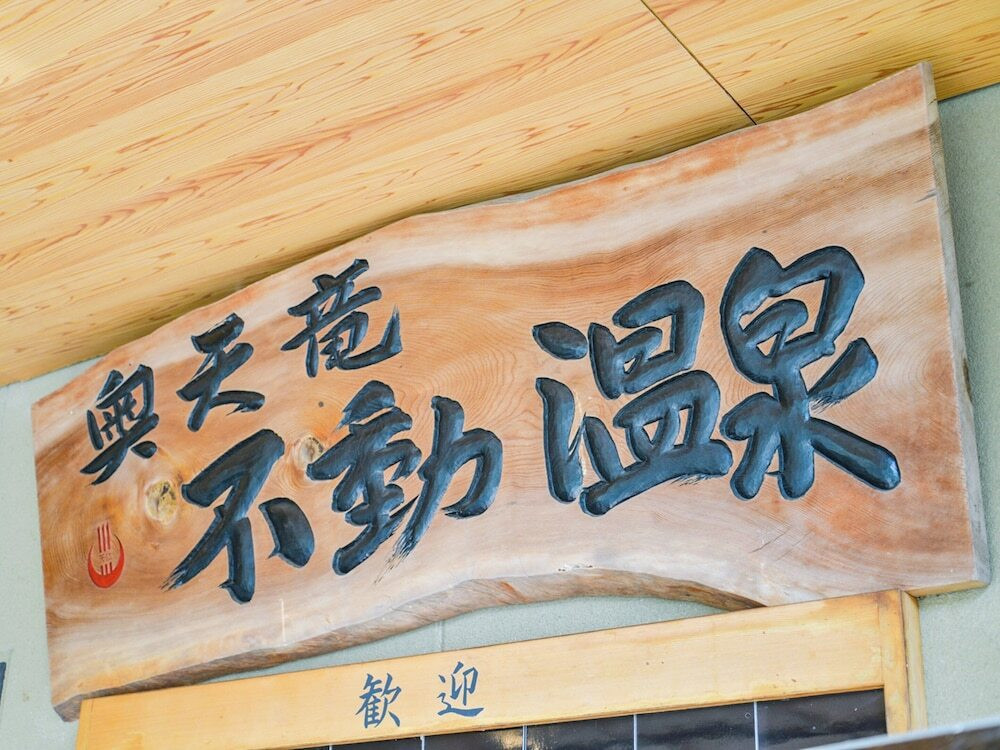 奥天竜
不動温泉
歓迎